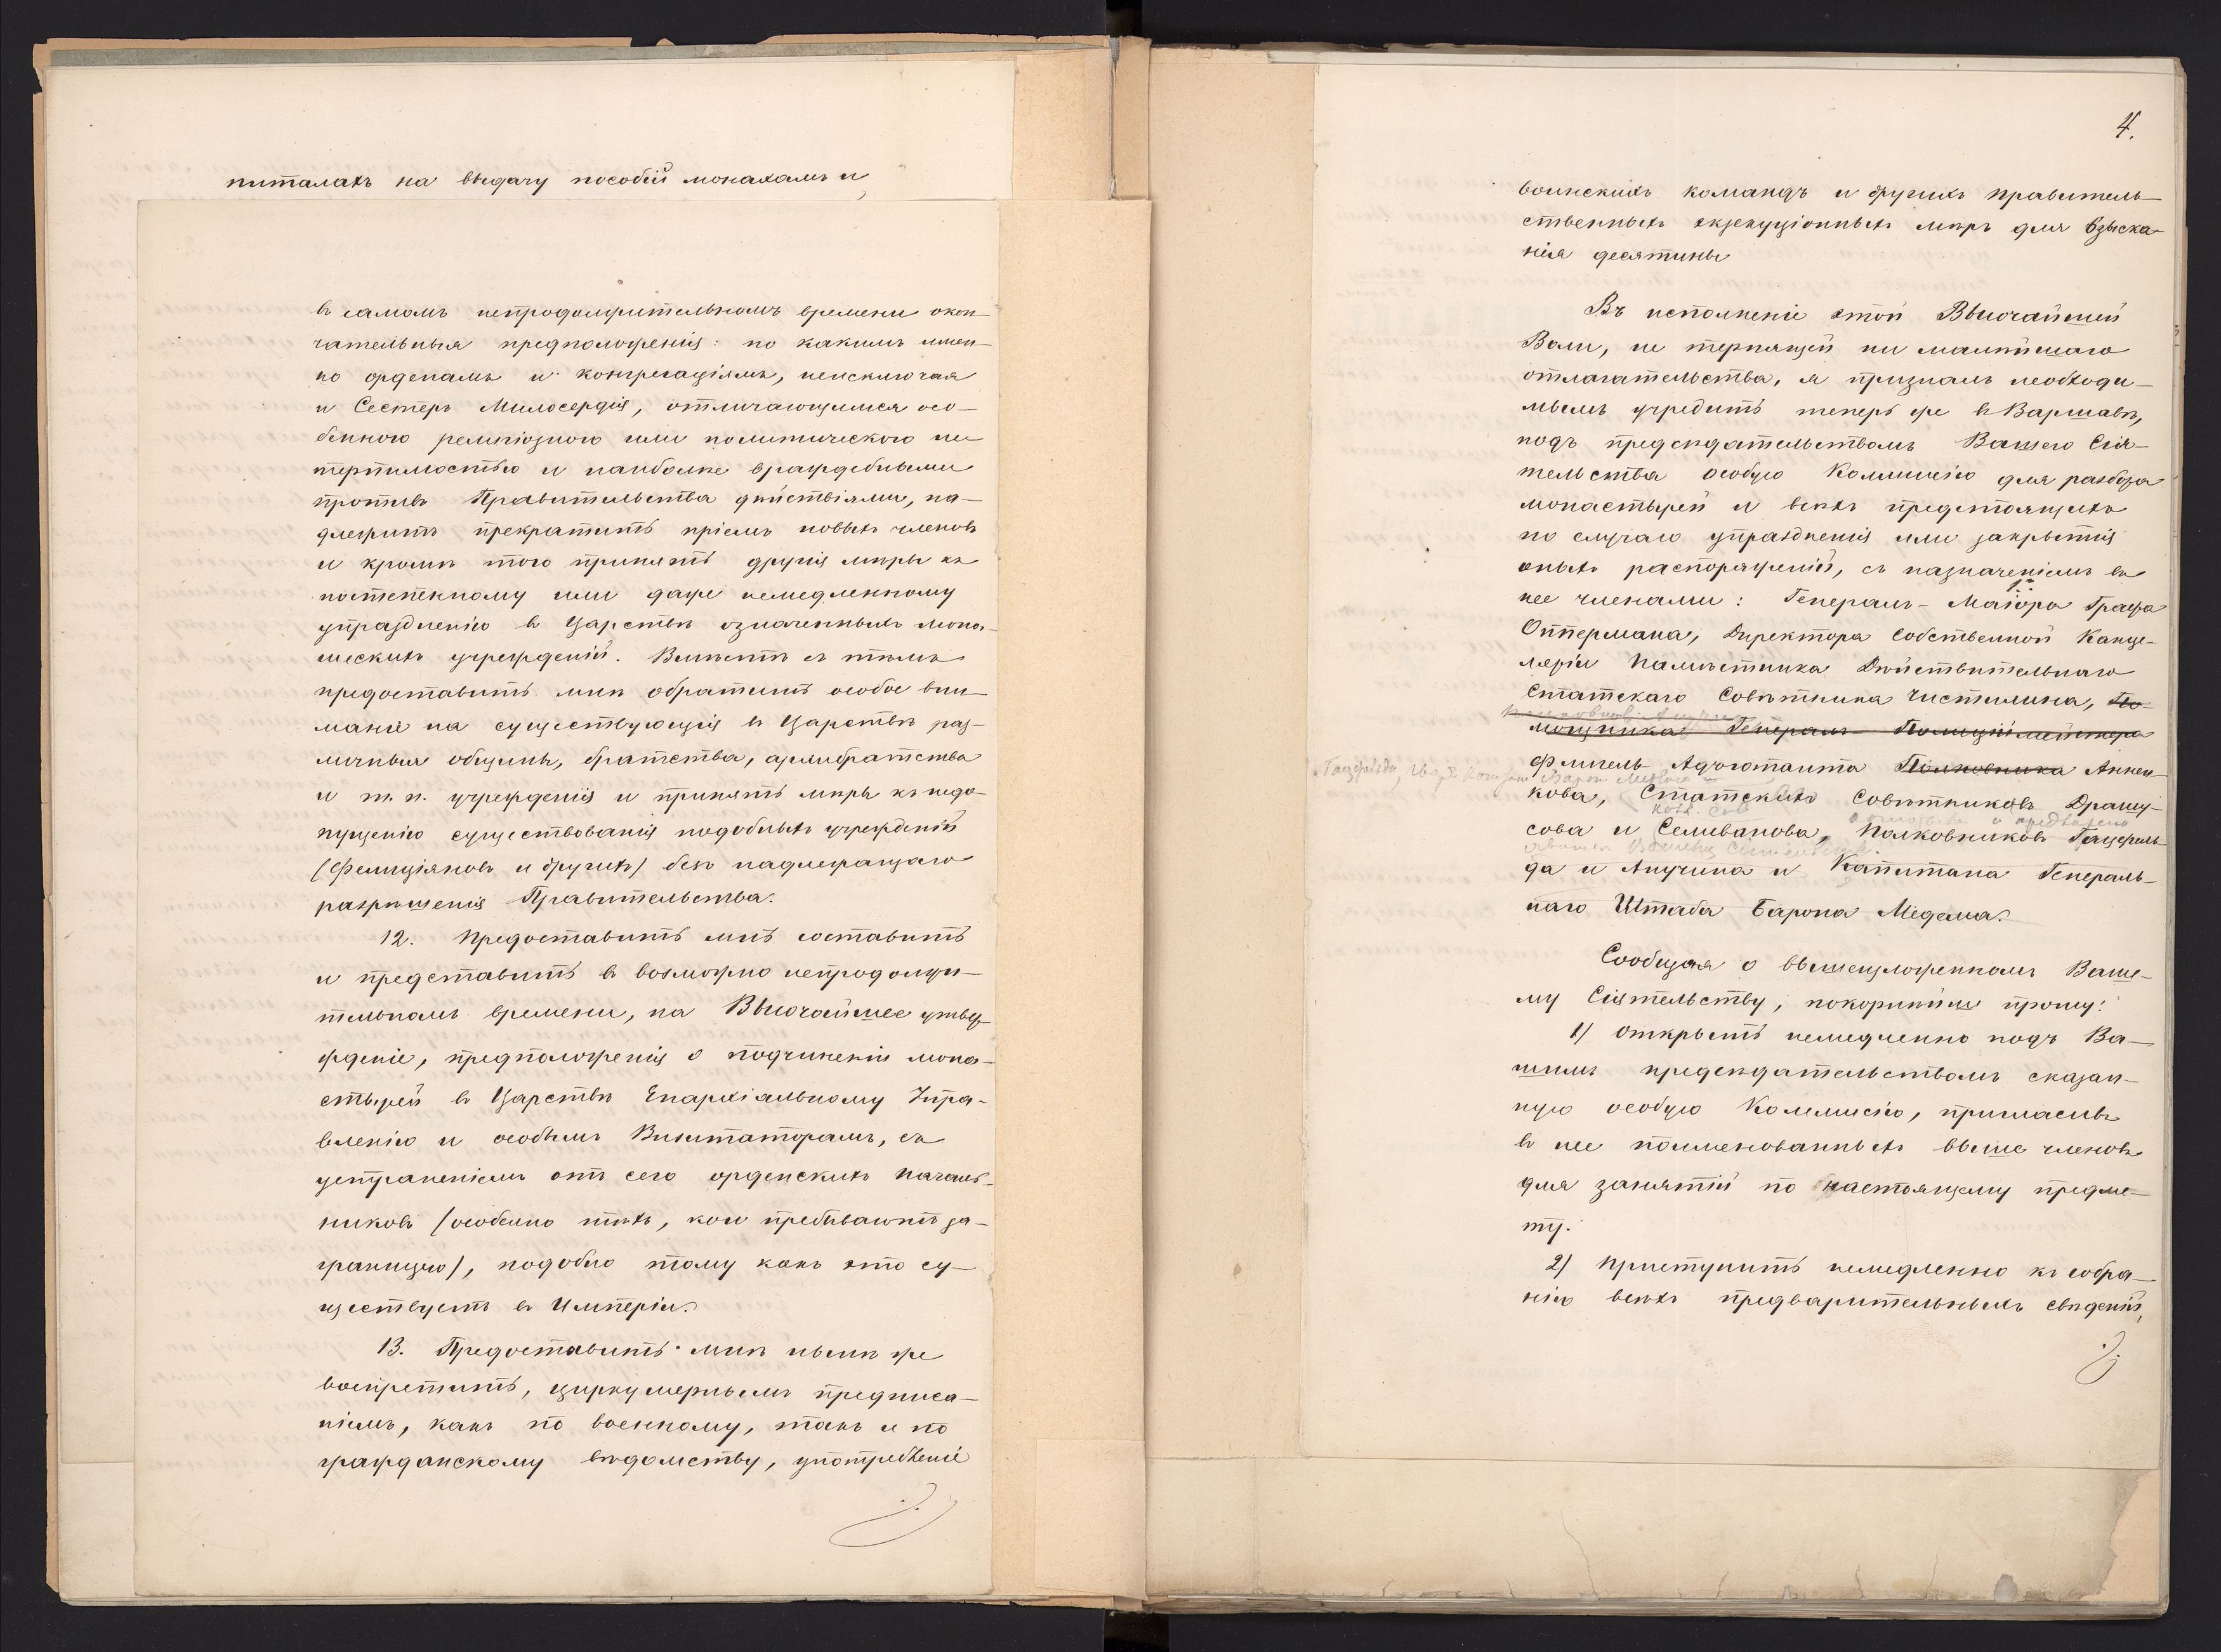 питалахъ на выдачу пособій монахамъ и
въ самомъ непродолжительномъ времени окон-
чательныя предположенія: по какимъ имен-
но орденамъ и конгрегаціямъ, неисключая
и Сестеръ Милосердія, отличающимся осо-
бенною религіозною или политическою не-
терпимостью и наиболѣе враждебными
противъ Правительства дѣйствіями, на-
длежитъ прекратить пріемъ новыхъ членовъ
и кромѣ того принять другія мѣры къ
постепенному или даже немедленному
упраздненію въ Царствѣ означенныхъ мона-
шескихъ учрежденій. Вмѣстѣ съ тѣмъ
предоставить мнѣ обратить особое вни-
маніе на существующія въ Царствѣ раз-
личныя общины, братства, архибратства
и т. п. учрежденія и принять мѣры къ недо-
пущенію существованія подобныхъ учрежденій
(Фелиціяновъ и другихъ) безъ надлежащаго
разрѣшенія Правительства.
12. Предоставить мнѣ составить
и представить въ возможно непродолжи-
тельномъ времени, на Высочайшее утвер-
жденіе, предположенія о подчиненіи мона-
стырей въ Царствѣ Епархіальному Упра-
вленію и особымъ Визитаторамъ, съ
устраненіемъ отъ сего орденскихъ Началь-
никовъ (особенно тѣхъ, кои пребываютъ за-
границею), подобно тому какъ это су-
ществуетъ въ Имперіи.
13. Предоставить мнѣ нынѣ же
воспретить, циркулярнымъ предписа-
ніемъ, какъ по военному, такъ и по
гражданскому вѣдомству, употребленіе
4.
воинскихъ командъ и другихъ правитель-
ственныхъ экзекуціонныхъ мѣръ для взыска-
нія десятины
Въ исполненіе этой Высочайшей
Воли, не терпящей ни малѣйшаго
отлагательства, я призналъ необходи-
мымъ учредить теперь же въ Варшавѣ,
подъ предсѣдательствомъ Вашего Сія-
тельства особую Коммисію для разбора
монастырей и всѣхъ предстоящихъ
по случаю упраздненія или закрытія
оныхъ распоряженій, съ назначеніемъ въ
нее членами: Генералъ-Маіора Графа
Оппермана, Директора Собственной Канце-
ляріи Намѣстника Дѣйствительнаго
Статскаго Совѣтника Чистилина, По-
мощника Генералъ-Полиціймейстера
Флигель-Адъютанта Полковника Аннен-
кова, Статскихъ Совѣтниковъ Драшу-
сова и Селиванова, Полковниковъ Гацфель-
да и Анучина и Капитана Генераль-
наго Штаба Барона Медема.
Сообщая о вышеизложенномъ Ваше-
му Сіятельству, покорнѣйше прошу:
1) Открыть немедленно подъ Ва-
шимъ предсѣдательствомъ сказан-
ную особую Коммисію, пригласивъ
въ нее поименованныхъ выше членовъ
для занятій по настоящему предме-
ту.
2) Приступить немедленно къ собра-
нію всѣхъ предварительныхъ свѣденій,